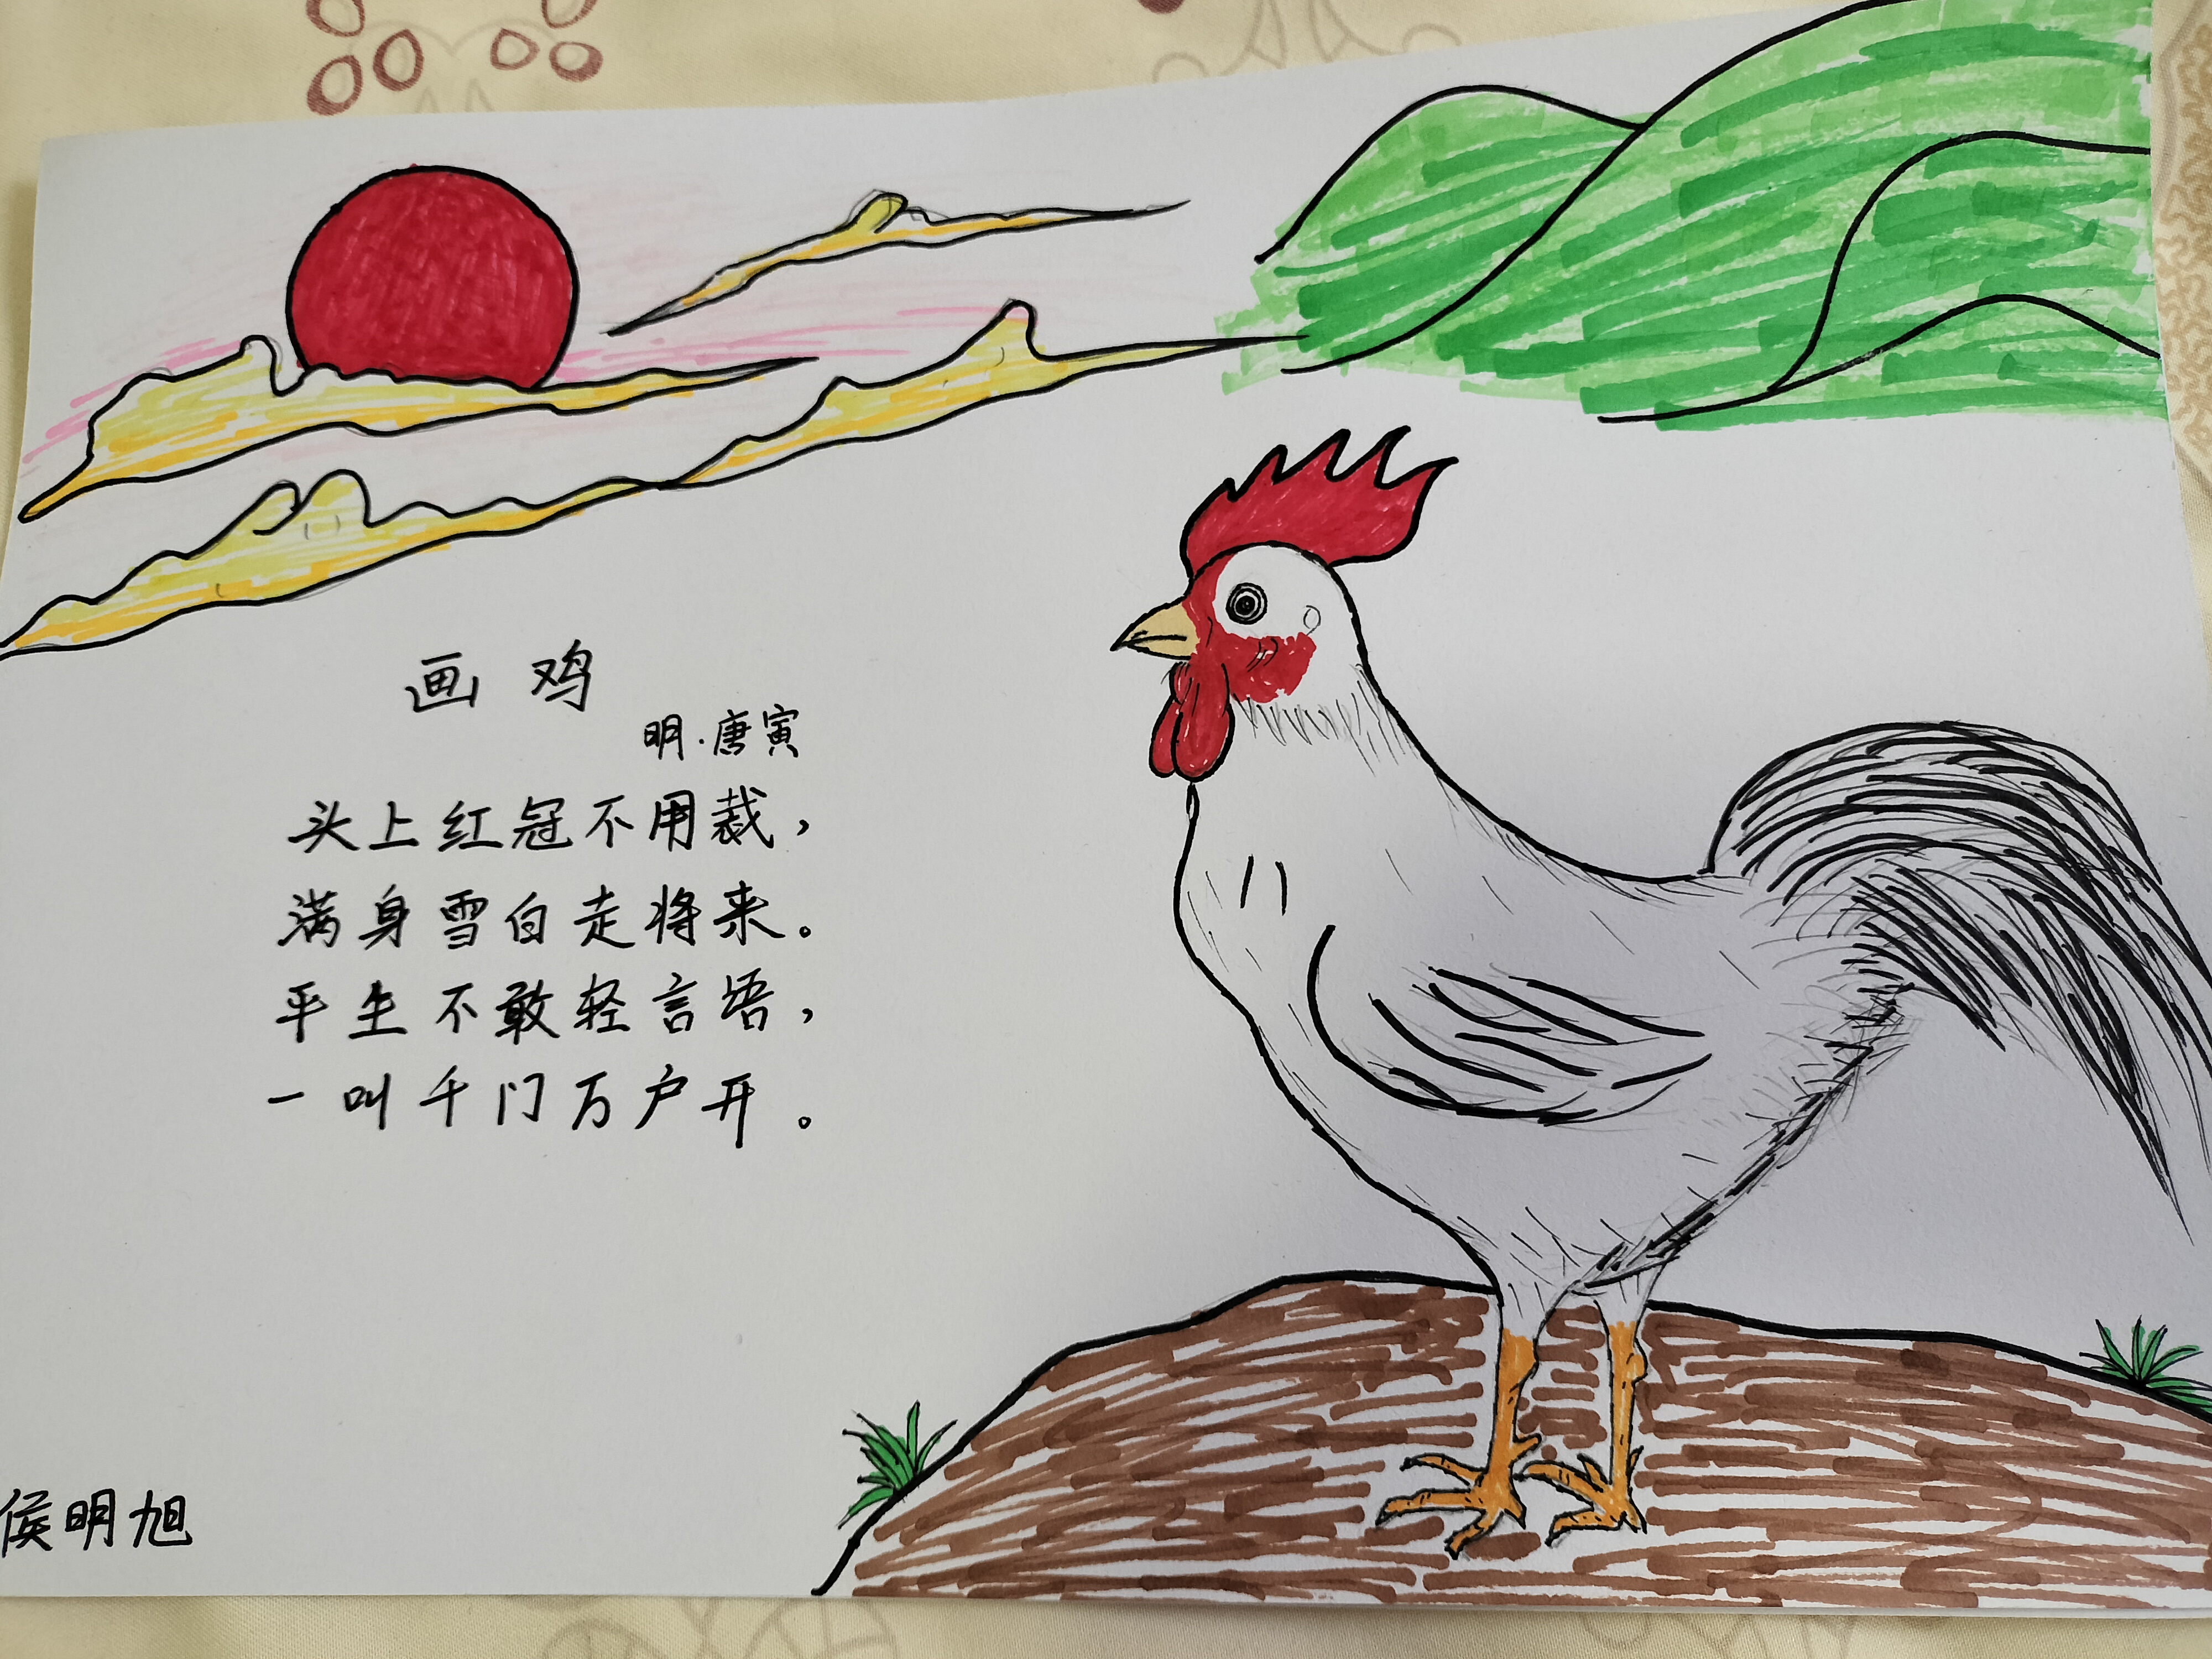 画鸡
明·唐寅
头上红冠不用裁，
满身雪白走将来。
平生不敢轻言语，
一叫千门万户开。
侯明旭